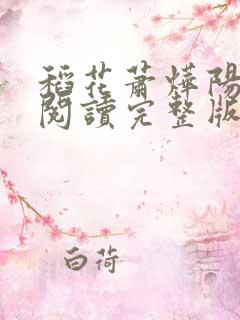 稻花蕭燁陽
閱讀完整版
白荷